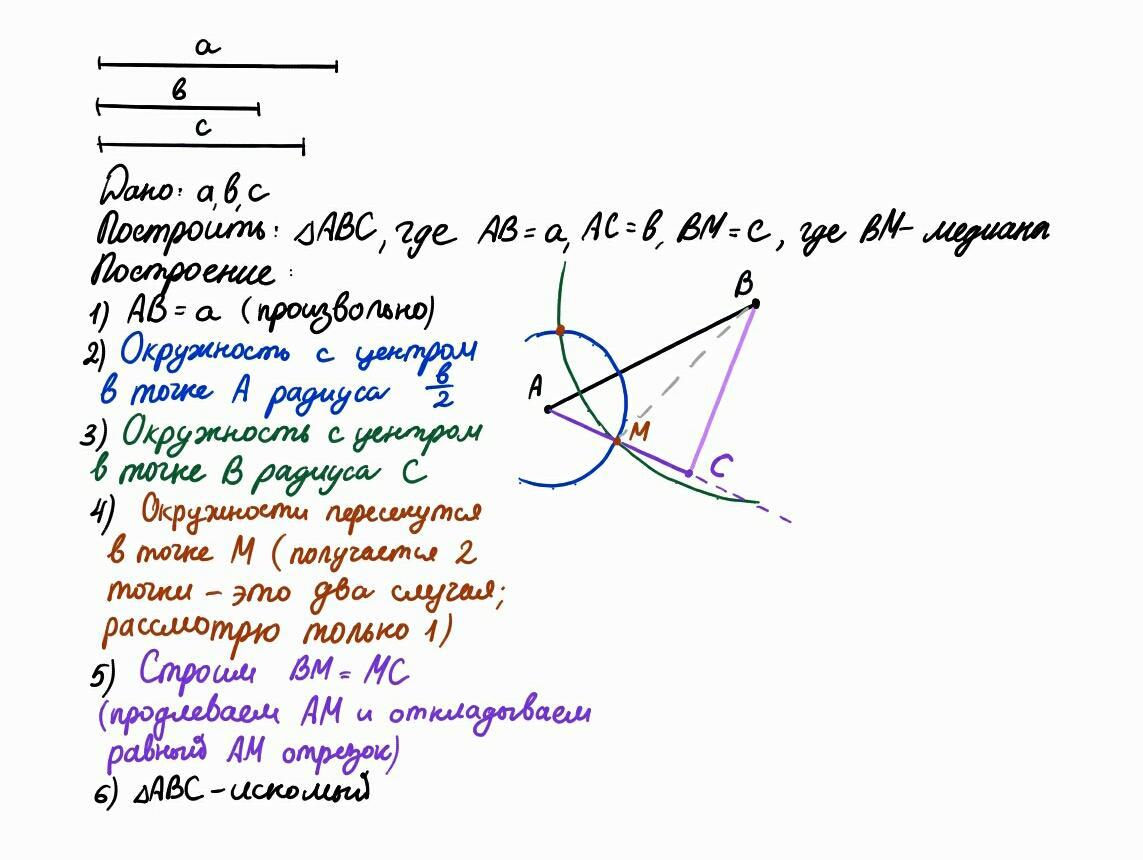 a
в
c
Дано: а, в, с
Построить: △ABC, где AB = a, AC = в, BM = c, где BM - медиана
Построение:
1) AB = a (произвольно)
2) Окружность с центром
в точке A радиуса в/2
3) Окружность с центром
в точке B радиуса C
4) Окружности пересекутся
в точке M (получается 2
точки - это два случая;
рассмотрю только 1)
5) Строим BM = MC
(продлеваем AM и откладываем
равный AM отрезок)
6) △ABC - искомый
B
A
M
C